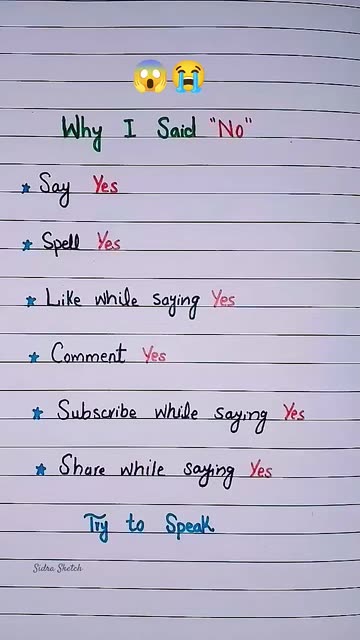 😱😭
Why I Said "No"
★ Say Yes
★ Spell Yes
★ Like while saying Yes
★ Comment Yes
★ Subscribe while saying Yes
★ Share while saying Yes
Try to Speak
Sidra Sketch